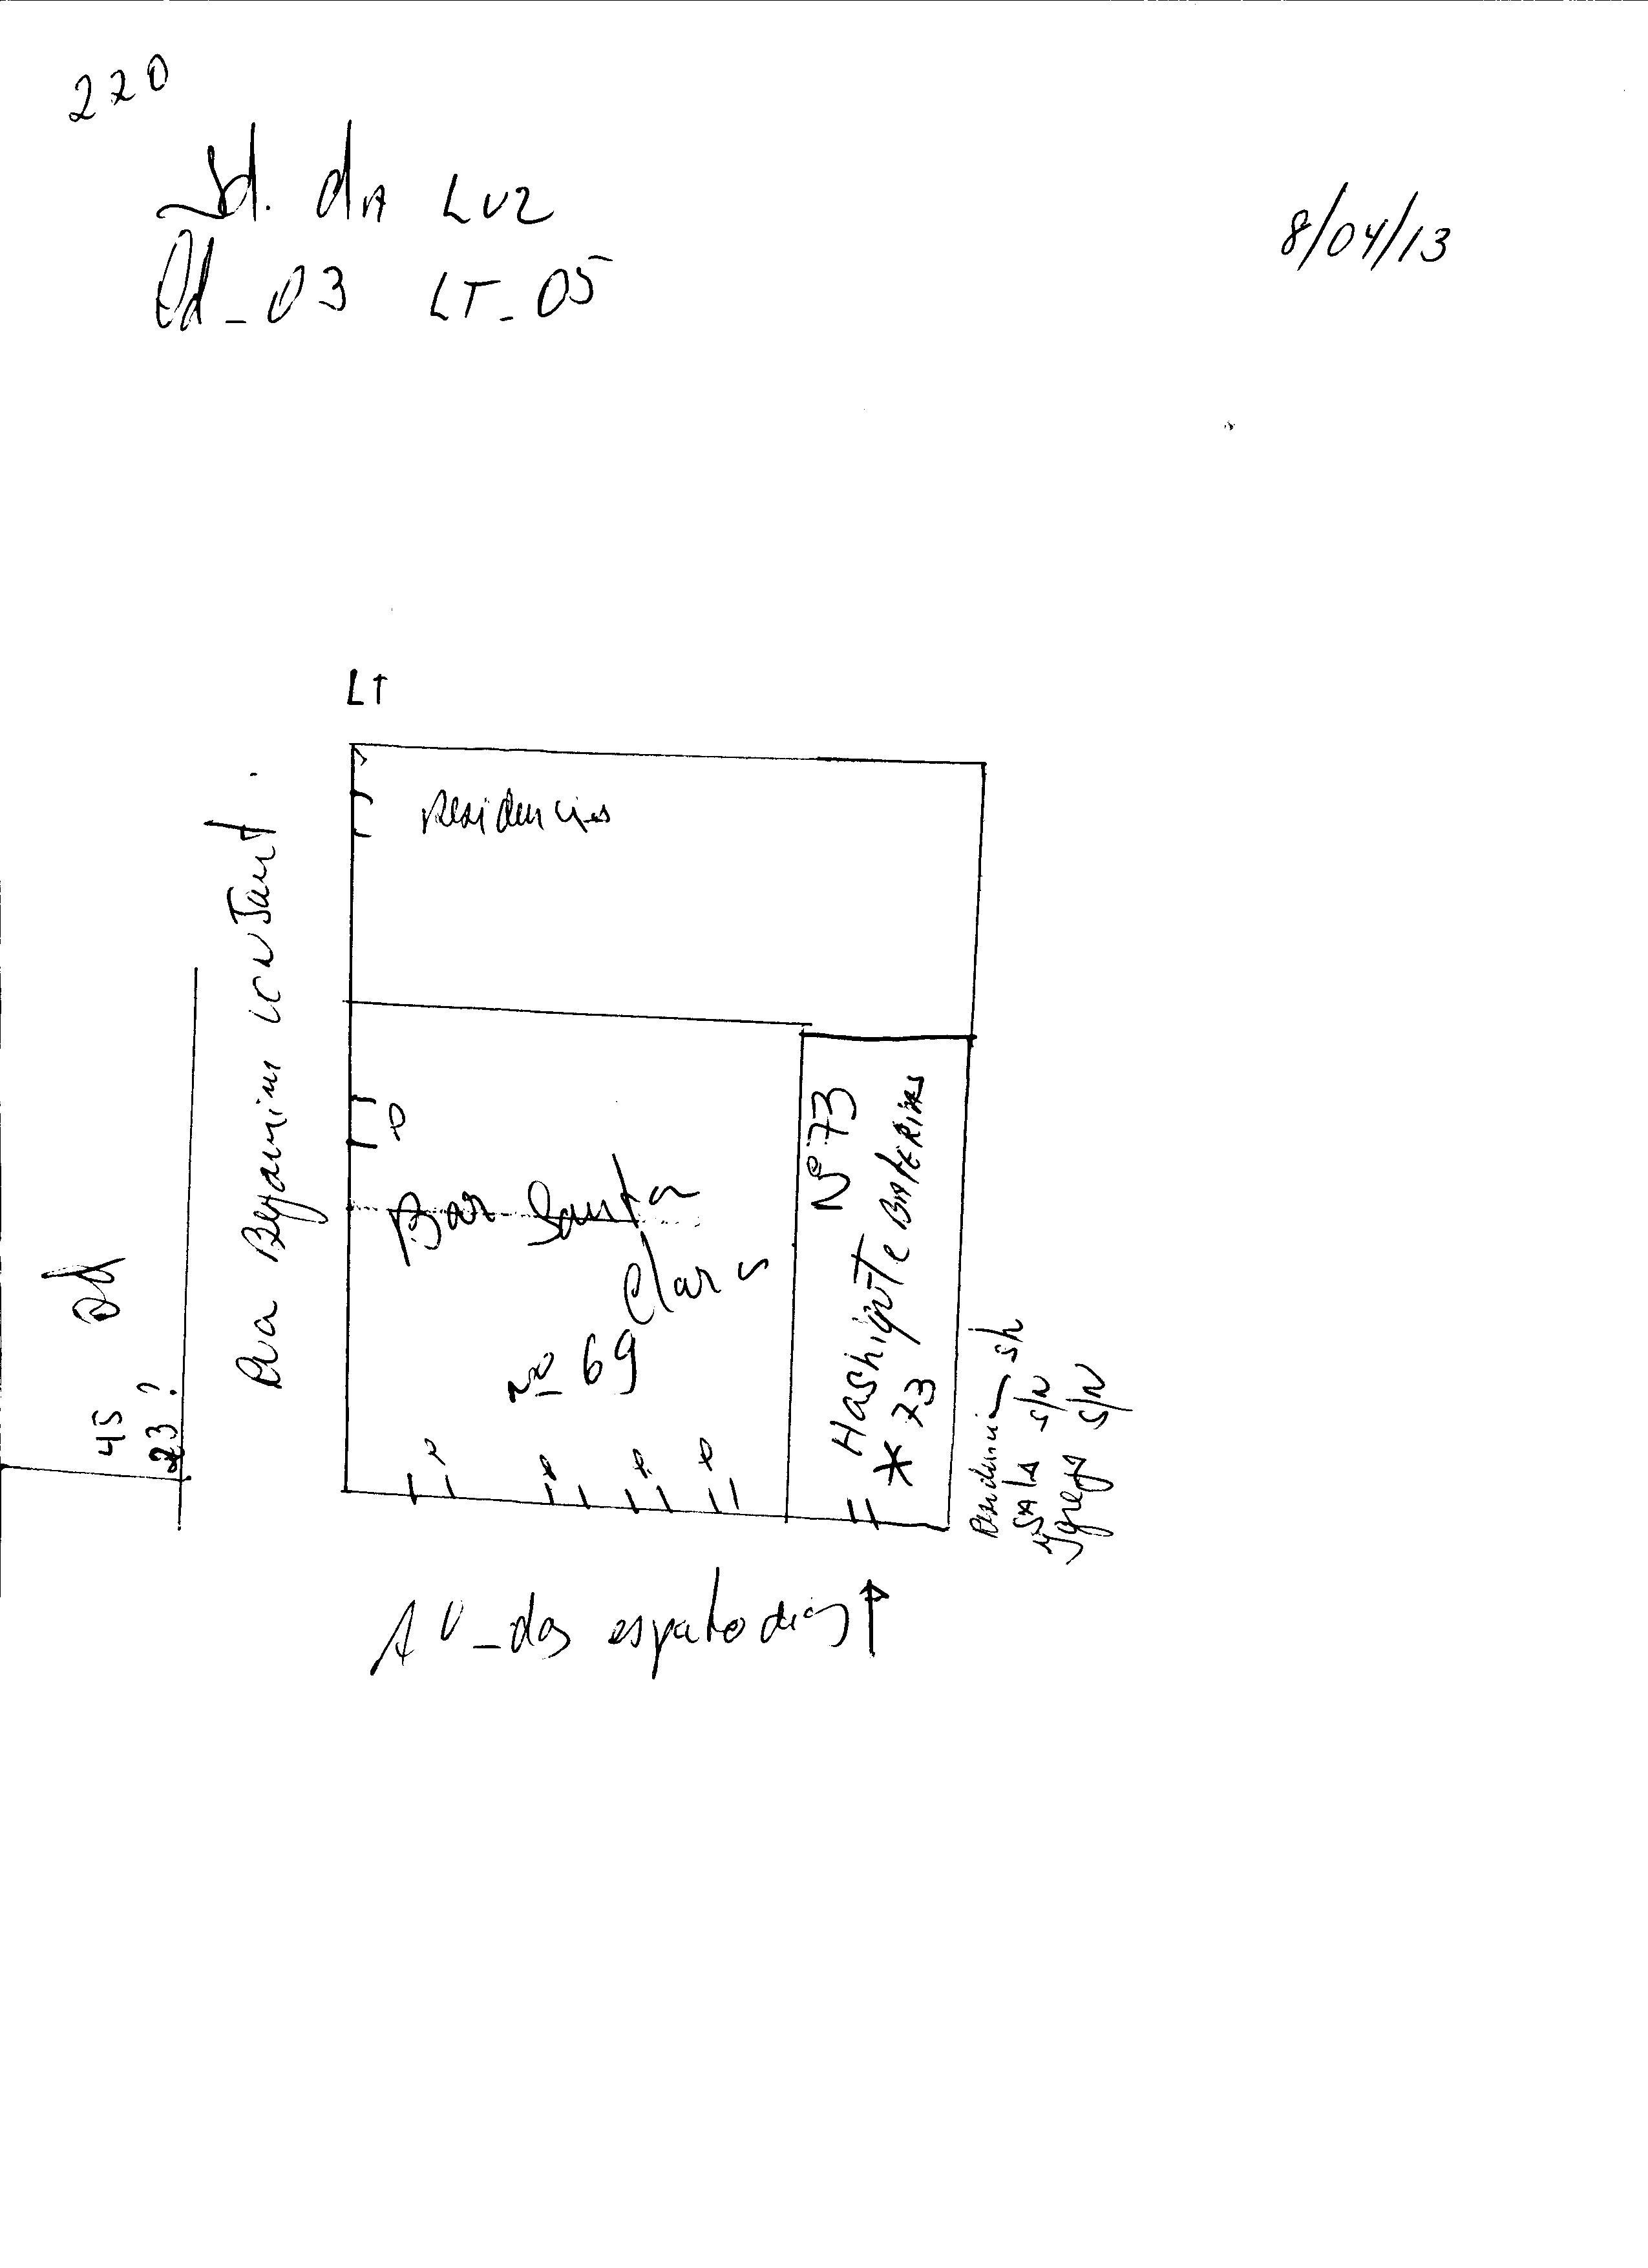 220
Jd. da LUZ
Qd_03 LT_05
8/04/13
LT
Residencias
Rua Benjamim Constant.
Qd
45
23?
Bar Santa
Clara
nº 69
Nº 73
Hashigute Baterias
* 73
Residencia s/n
Sala s/N
Igreja s/N
AV_das espatodias